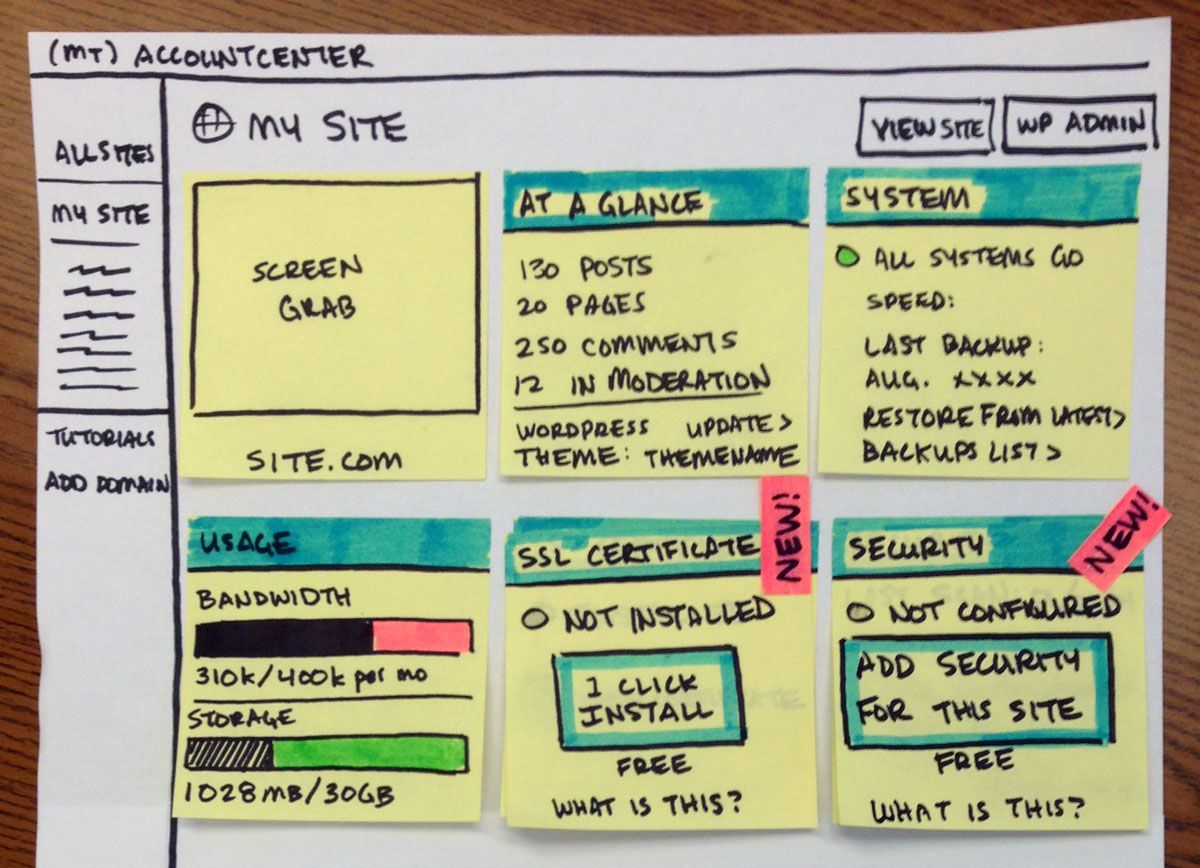 (MT) ACCOUNTCENTER
ALL SITES
MY SITE
TUTORIALS
ADD DOMAIN
MY SITE
VIEW SITE
WP ADMIN
SCREEN
GRAB
SITE.COM
AT A GLANCE
130 POSTS
20 PAGES
250 COMMENTS
12 IN MODERATION
WORDPRESS UPDATE >
THEME: THEMENAME
SYSTEM
ALL SYSTEMS GO
SPEED:
LAST BACKUP:
AUG. XXXX
RESTORE FROM LATEST>
BACKUPS LIST >
USAGE
BANDWIDTH
310K/400K per mo
STORAGE
1028MB/30GB
SSL CERTIFICATE
NEW!
NOT INSTALLED
1 CLICK
INSTALL
FREE
WHAT IS THIS?
SECURITY
NEW!
NOT CONFIGURED
ADD SECURITY
FOR THIS SITE
FREE
WHAT IS THIS?